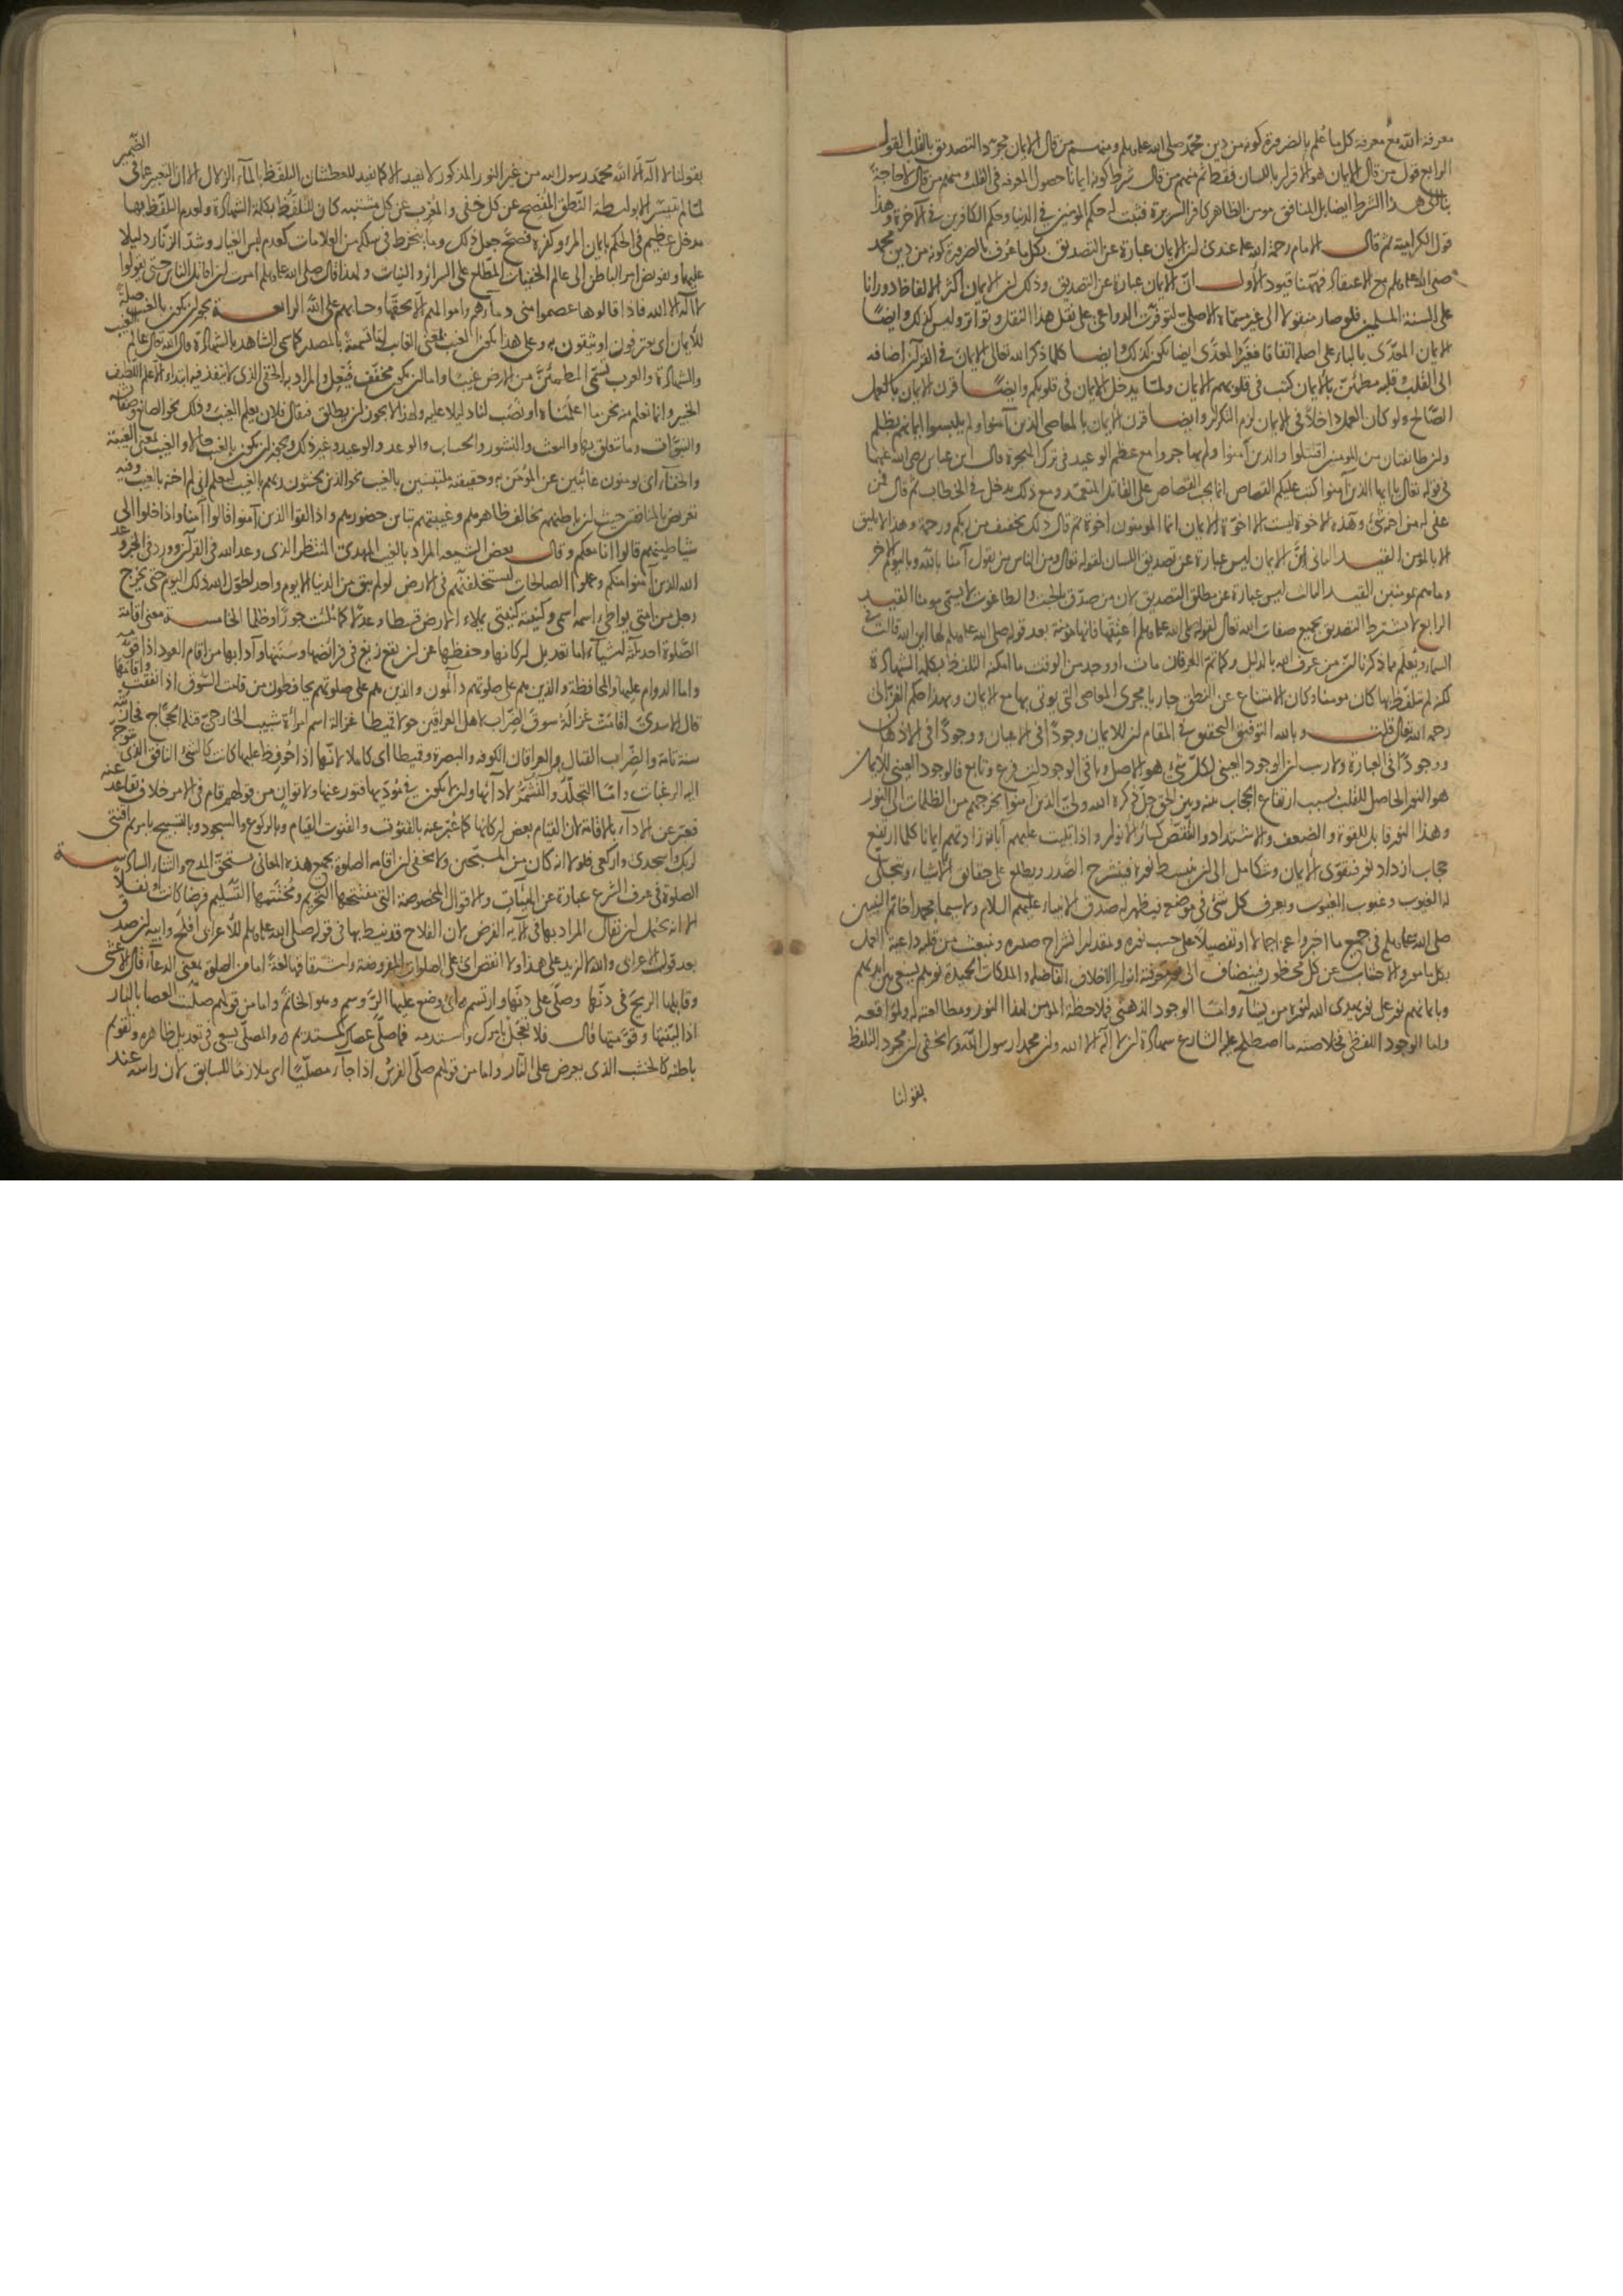 معرفة الله مع معرفة كل ما علم بالضرورة كونه من دين محمد صلى الله عليه وسلم ومنهم من قال الايمان مجرد التصديق بالقلب القول
الرابع قول من قال الايمان هو الاقرار باللسان فقط ثم منهم من قال شرط كونه ايمانا حصول المعرفة في القلب ومنهم من قال لا حاجة
بنا الى هذا الشرط ايضا بل المنافق مومن الظاهر كافر السريرة فثبت له حكم المومنين في الدنيا وحكم الكافرين في الآخرة وهذا
قول الكرامية ثم قال الامام رحمة الله عليه عندي ان الايمان عبارة عن التصديق بكل ما عرف بالضرورة كونه من دين محمد
صلى الله عليه وسلم مع الاعتقاد فههنا قيود الاول ان الايمان عبارة عن التصديق وذلك ان الايمان اكثر الالفاظ دورانا
على السنة المسلمين فلو صار منقولا الى غير مسماه الاصلي لتوفرت الدواعي على نقل هذا النقل وتواتر وليس كذلك وايضا
الايمان المعدى بالباء على اصله اتفاقا فغير المعدى ايضا يكون كذلك وايضا كلما ذكر الله تعالى الايمان في القرآن اضافه
الى القلب وقلبه مطمئن بالايمان كتب في قلوبهم الايمان ولما يدخل الايمان في قلوبكم وايضا قرن الايمان بالعمل
الصالح ولو كان العمل داخلا في الايمان لزم التكرار وايضا قرن الايمان بالمعاصي الذين آمنوا ولم يلبسوا ايمانهم بظلم
وان طائفتان من المومنين اقتتلوا والذين آمنوا ولم يهاجروا مع عظيم الوعيد في ترك الهجرة قال ابن عباس رضي الله عنهما
في قوله تعالى يا ايها الذين آمنوا كتب عليكم القصاص انما يجب القصاص على القاتل المتعمد ومع ذلك يدخل في الخطاب ثم قال فمن
عفي له من اخيه شئ وهذه الاخوة ليست الا اخوة الايمان انما المومنون اخوة ثم قال ذلك تخفيف من ربكم ورحمة وهذا لا يليق
الا بالمؤمن القيد الثاني ان الايمان ليس عبارة عن تصديق اللسان لقوله تعالى ومن الناس من يقول آمنا بالله وباليوم الآخر
وما هم بمومنين القيد الثالث ليس عبارة عن مطلق التصديق لان من صدق بالجبت والطاغوت لا يسمى مومنا القيد
الرابع لا يشترط التصديق بجميع صفات الله تعالى لقوله صلى الله عليه وسلم اعتقها فانها مؤمنة بعد قوله صلى الله عليه وسلم لها اين الله قالت في
السماء ويعلم مما ذكرنا ان من عرف الله بالدليل وكما تم العرفان مات او وجد من الوقت ما امكنه التلفظ بكلمة الشهادة
لكنه لم يتلفظ بها كان مومنا وكان الامتناع عن النطق جاريا مجرى المعاصي التي يوتى بها مع الايمان وبهذا حكم الغزالي
رحمه الله تعالى قلت وبالله التوفيق التحقيق في المقام ان للايمان وجودا في الاعيان ووجودا في الاذهان
ووجودا في العبارة ولا ريب ان الوجود العيني لكل شئ هو الاصل وباقي الوجودات فرع وتابع فالوجود العيني للايمان
هو النور الحاصل للقلب بسبب ارتفاع الحجاب بينه وبين الحق جل ذكره الله ولي الذين آمنوا يخرجهم من الظلمات الى النور
وهذا النور قابل للقوة والضعف والاشتداد والنقص كسائر الانوار واذا تليت عليهم آياته زادتهم ايمانا كلما ارتفع
حجاب ازداد نور فتقوى الايمان وتكامل الى ان ينبسط نوره فينشرح الصدر ويطلع على حقائق الاشياء وتتجلى
له الغيوب وغيوب الغيوب ويعرف كل شئ في موضعه فيظهر له صدق الانبياء عليهم السلام ولا سيما محمد خاتم النبيين
صلى الله عليه وسلم في جميع ما اخبروا عنه اجمالا او تفصيلا على حسب نوره وبمقدار انشراح صدره وينبعث من قلبه داعية العمل
بكل مامور والاجتناب عن كل محظور فينضاف الى نور معرفته انوار الاخلاق الفاضلة والملكات الحميدة نورهم يسعى بين ايديهم
وبايمانهم نور على نور يهدي الله لنوره من يشاء واما الوجود الذهني فملاحظة المؤمن لهذا النور ومطالعته له ولمواقعه
واما الوجود اللفظي فخلاصته ما اصطلح عليه الشارع شهادة ان لا اله الا الله وان محمدا رسول الله ولا يخفى ان مجرد التلفظ
بقولنا
بقولنا لا اله الا الله محمد رسول الله من غير النور المذكور لا يفيد الا كما يفيد للعطشان التلفظ بالماء الزلال الا ان التعبير عما في الضمير
لما لم يتيسر الا بواسطة النطق المفصح عن كل خفي والمعرب عن كل مشتبه كان للتلفظ بكلمة الشهادة ولعدم التلفظ بها
مدخل عظيم في الحكم بايمان المرء وكفره فصح جعل ذلك وما ينخرط في سلكه من العلامات كعدم لبس الغيار وشد الزنار دليلا
عليهما وتفويض امر الباطن الى عالم الخفيات المطلع على السرائر والنيات ولهذا قال صلى الله عليه وسلم امرت ان اقاتل الناس حتى يقولوا
لا اله الا الله فاذا قالوها عصموا مني دماءهم واموالهم الا بحقها وحسابهم على الله الرابعة يجوز ان يكون بالغيب صلة
للايمان اي يعترفون او يثقون به وعلى هذا يكون الغيب بمعنى الغائب اما تسمية بالمصدر كما سمي الشاهد بالشهادة قال الله تعالى عالم الغيب
والشهادة والعرب تسمي المطمئن من الارض غيبا واما ان يكون مخفف فيعل والمراد به الخفي الذي لا ينفذ فيه ابتداء الا علم اللطيف
الخبير وانما نعلم منه نحن ما اعلمناه او نصب لنا دليلا عليه ولهذا لا يجوز ان يطلق فيقال فلان يعلم الغيب وذلك نحو الصانع وصفاته
والنبوات وما يتعلق بها والبعث والنشور والحساب والوعد والوعيد وغير ذلك ويجوز ان يكون بالغيب حالا والغيب بمعنى الغيبة
والخفاء اي يومنون غائبين عن المؤمن به وحقيقته ملتبسين بالغيب نحو الذين يخشون ربهم بالغيب ليعلم اني لم اخنه بالغيب وفيه
تعريض بالمنافقين حيث ان باطنهم يخالف ظاهرهم وغيبتهم تباين حضورهم واذا لقوا الذين آمنوا قالوا آمنا واذا خلوا الى
شياطينهم قالوا انا معكم وقال بعض الشيعة المراد بالغيب المهدي المنتظر الذي وعد الله في القرآن وورد في الخبر وعد
الله الذين آمنوا منكم وعملوا الصالحات ليستخلفنهم في الارض لو لم يبق من الدنيا الا يوم واحد لطول الله ذلك اليوم حتى يخرج
رجل من امتي يواطي اسمه اسمي وكنيته كنيتي يملاء الارض قسطا وعدلا كما ملئت جورا وظلما الخامسة معنى اقامة
الصلوة احد ثلثة اشياء اما تعديل اركانها وحفظها من ان يقع زيغ في فرائضها وسننها وآدابها من اقام العود اذا قومه
واما الدوام عليها والمحافظة والذين هم على صلوتهم دائمون والذين هم على صلوتهم يحافظون من قامت السوق اذا نفقت واقامها
قال الاسدي اقامت غزالة سوق الضراب لاهل العراقين حولا قميطا غزالة اسم امرأة شبيب الخارجي قتله الحجاج فحاربته
سنة تامة والضراب القتال والعراقان الكوفة والبصرة وقميطا اي كاملا لانها اذا حوفظ عليها كانت كالشئ النافق الذي تتوجه
اليه الرغبات واما التجلد والتشمر لادائها وان لا يكون في مؤديها فتور عنها ولا توان من قولهم قام في الامر خلاف تقاعد عنه
فعبر عن الاداء بالاقامة لان القيام بعض اركانها كما عبر عنه بالقنوت والقنوت القيام وبالركوع والسجود وبالتسبيح يا مريم اقنتي
لربك واسجدي واركعي فلولا انه كان من المسبحين ولا يخفى ان اقامة الصلوة بجميع هذه المعاني يستحق المدح والثناء السادسة
الصلوة في عرف الشرع عبارة عن الهيآت والاقوال المخصوصة التي مفتتحها التحريم ومختتمها التسليم فرضا كانت او نفلا
الا انه يحتمل ان يقال المراد بها في الآية الفرض لان الفلاح قد نيط بها في قوله صلى الله عليه وسلم للاعرابي افلح وابيه ان صدق
بعد قول الاعرابي والله لا ازيد على هذا ولا انقص اي على الصلوات المفروضة واشتقاقها لغة اما من الصلوة بمعنى الدعاء قال الاعشى
وقابلها الريح في دنها وصلى على دنها وارتسم اي وضع عليها الروسم وهو الخاتم واما من قولهم صليت العصا بالنار
اذا لينتها وقومتها قال فلا تعجل بامرك واستدمه فما صلى عصاك كمستديم والمصلي يسعى في تعديل ظاهره وتقويم
باطنه كالخشب الذي يعرض على النار واما من قولهم صلى الفرس اذا جاء مصليا اي ملازما للسابق لان راسه عند